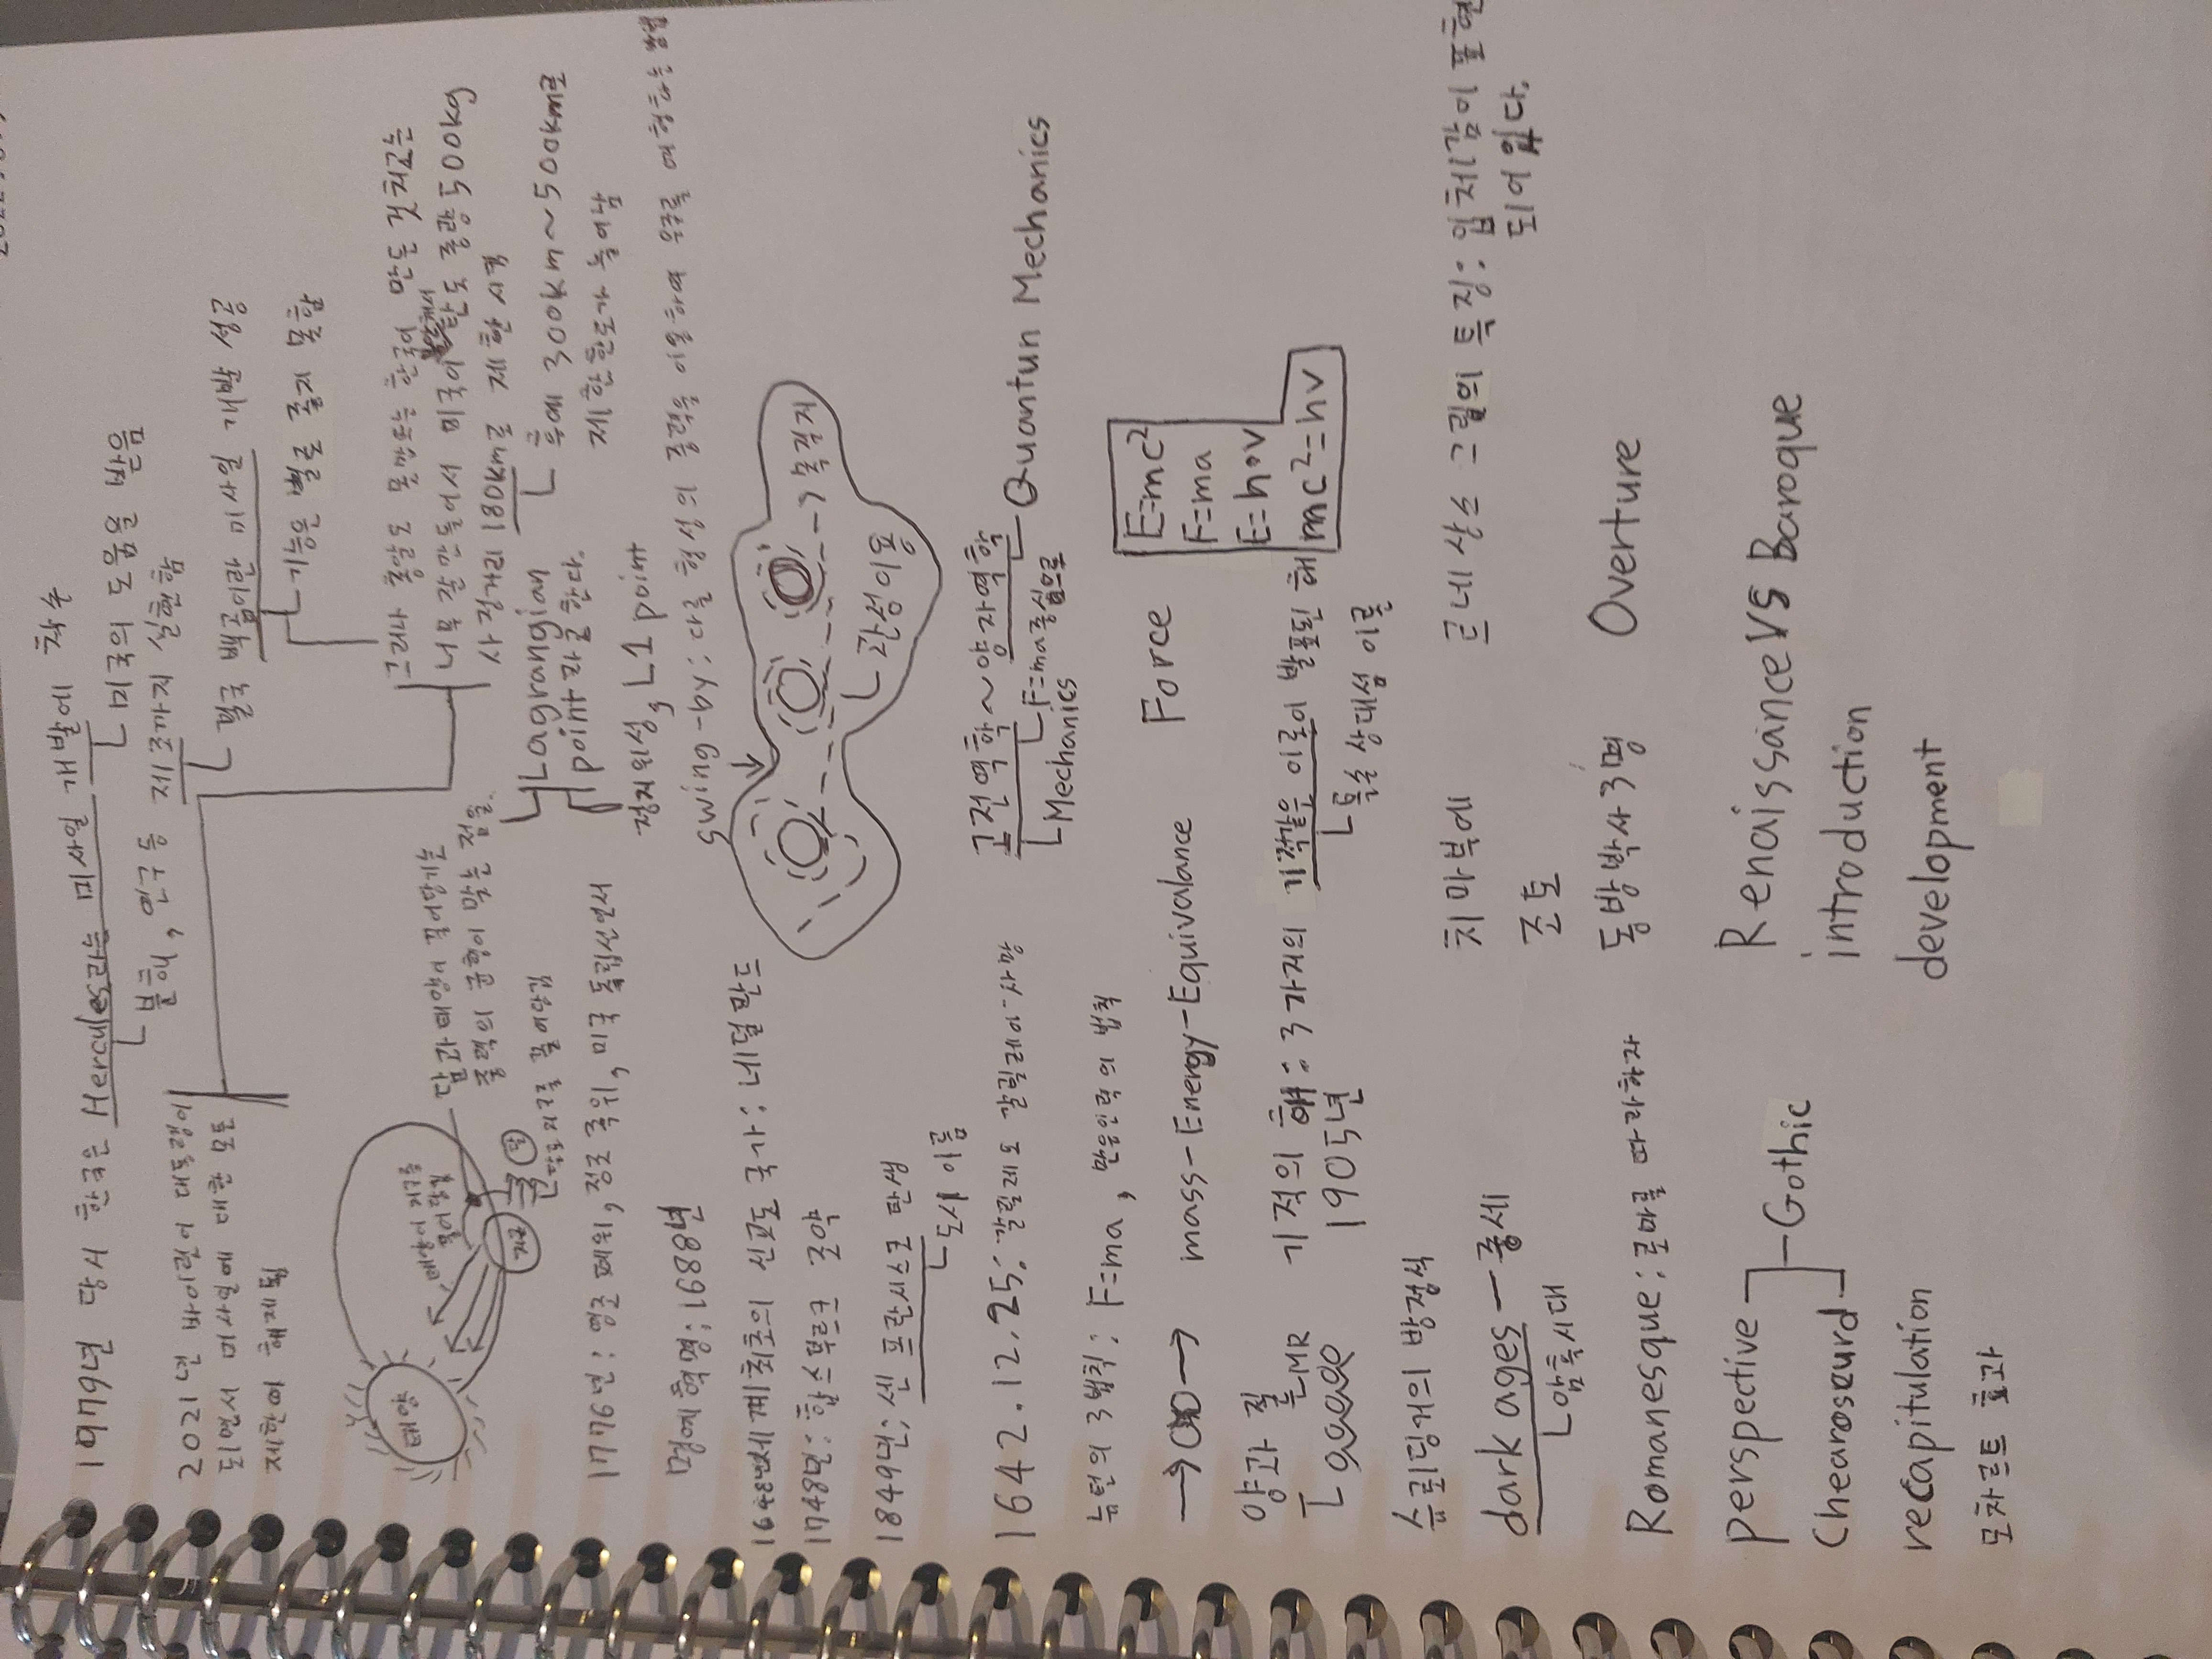 1979년 당시 한국은 Hercules라는 미사일 개발에 착수
분해, 연구 등
미국의 도움을 받음
제1호까지 실현함
결국 백곰이란 미사일 개발 성공
기능은 별로 좋지 못함
2021년 바이든이 대통령이
되면서 미사일에 대한 모든
제한이 해제됨
그러나 좋알도 못만드는 한국이 만든 것 치고는
너무 잘 만들어서 미국이 탄도 중량 500kg
사정거리 180km로 제한시킴
후에 300km~500km로
제한한도가 늘어남
태양
태양이 지구를
끌어당김
지구
달
달과 태양이 끌어당기는
중력의 균형이 맞는 점을
Lagrangian
point라 말한다.
달도 지구를 끌어당김
정지위성, L1 point
1776년: 영조 폐위, 정조 즉위, 미국 독립선언서
swing-by: 다른 행성의 중력을 이용하여 우주를 여행하는 방법
명예혁명: 1688년
목적지
관성이용
1648년 세계최초의 신교도 국가: 네덜란드
1748년: 합스부르크 조약
1849년: 샌 프란시스코 탄생
도시 이름
1642.12.25: 갈릴레오 갈릴레이 사망
고전역학~양자역학
Quantun Mechanics
F=ma중심으로
Mechanics
뉴턴의 3법칙: F=ma, 만유인력의 법칙
mass-Energy-Equivalance
Force
E=mc²
F=ma
E=h•v
mc²=hv
양과 질
기적의 해: 3가지의 기적같은 이론이 발표된 해
1905년
특수 상대성 이론
슈뢰딩거의 방정식
dark ages - 중세
암흑시대
치마부에
르네상스 그림의 특징: 입체감이 표현
되어 있다.
조토
Romanesque: 로마를 따라하자
동방박사 3명
Overture
perspective
Chearoscurd
Gothic
Renaissance VS Baroque
introduction
recapitulation
development
모차르트 효과